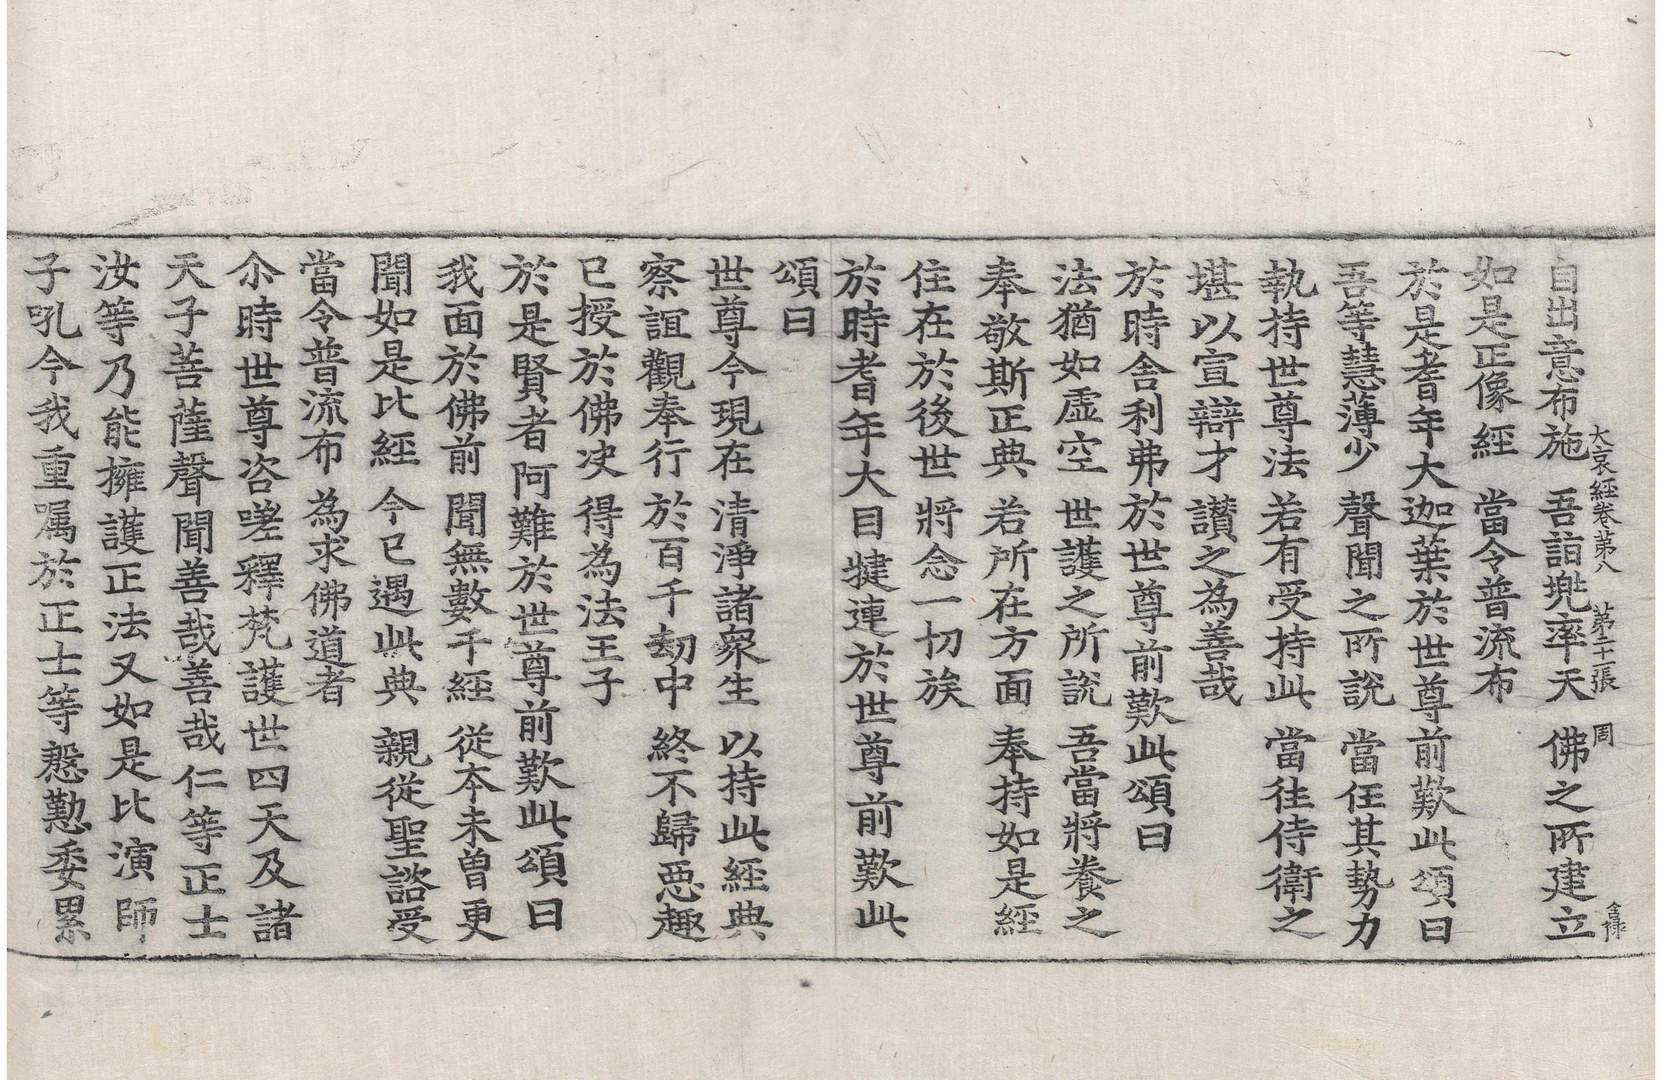 大哀經卷第八 第二十一張 周
自出意布施 吾詣兜率天 佛之所建立
如是正像經 當令普流布
於是耆年大迦葉於世尊前歎此頌曰
吾等慧薄少 聲聞之所說 當任其勢力
執持世尊法 若有受持此 當往侍衛之
堪以宣辯才 讃之為善哉
於時舍利弗於世尊前歎此頌曰
法猶如虛空 世護之所說 吾當將養之
奉敬斯正典 若所在方面 奉持如是經
住在於後世 將念一切族
於時耆年大目犍連於世尊前歎此
頌曰
世尊今現在 清淨諸衆生 以持此經典
察誼觀奉行 於百千劫中 終不歸惡趣
已授於佛决 得為法王子
於是賢者阿難於世尊前歎此頌曰
我面於佛前 聞無數千經 從本未曾更
聞如是比經 今已遇此典 親從聖諮受
當令普流布 為求佛道者
尒時世尊咨嗟釋梵護世四天及諸
天子菩薩聲聞善哉善哉仁等正士
汝等乃能擁護正法又如是比演師
子吼今我重嘱於正士等慇懃委累